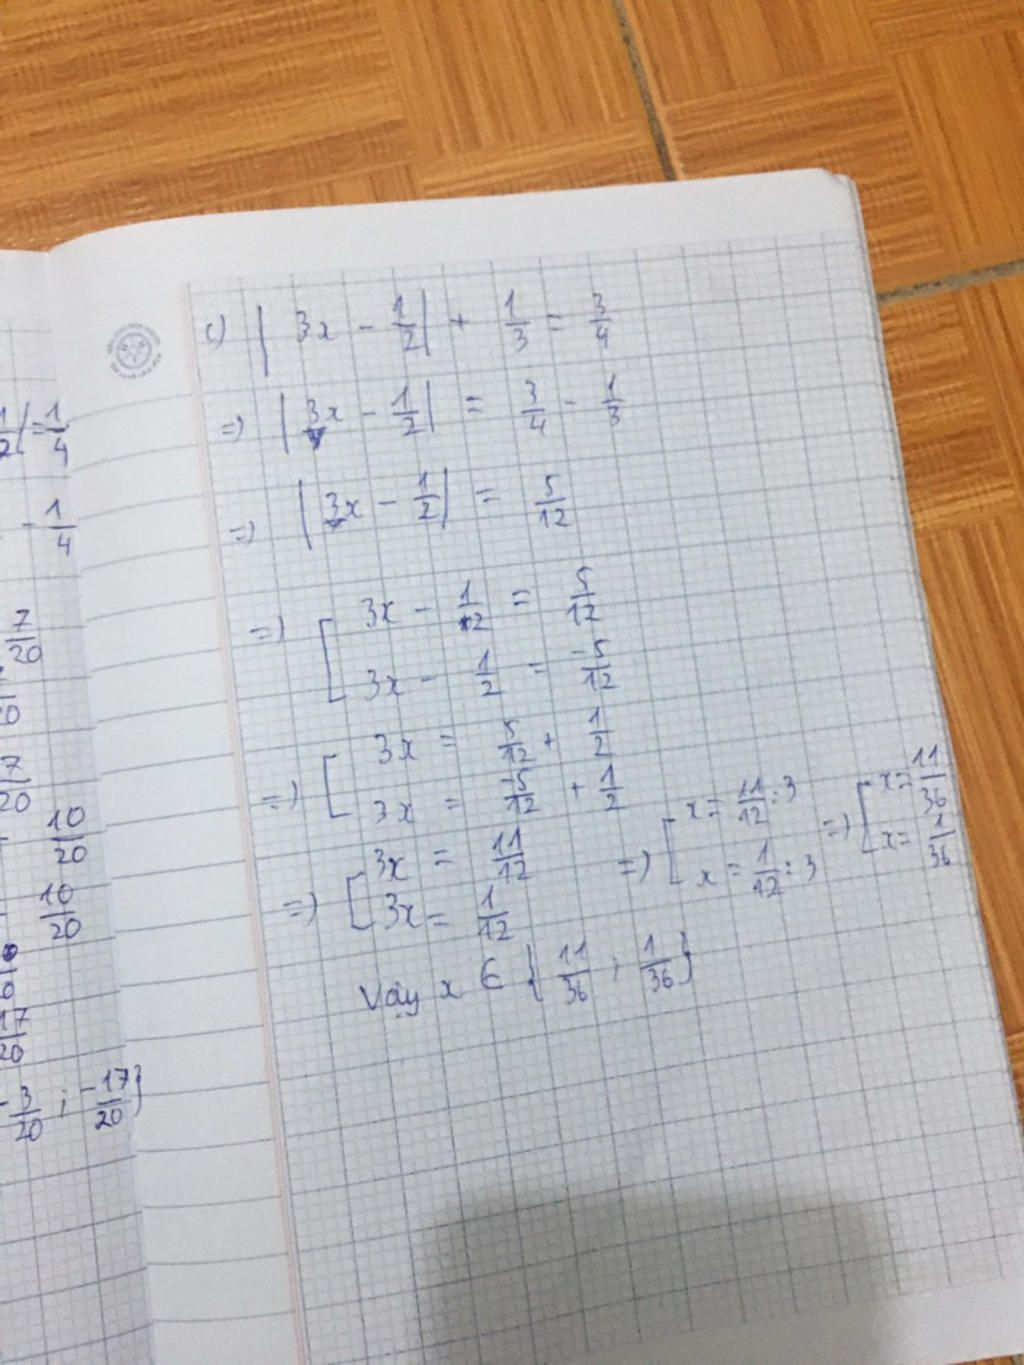 1/2| = 1/4
- 1/4
7/20
7/20
10/20
10/20
17/20
-3/20 ; -17/20}
c) | 3x - 1/2 | + 1/3 = 3/4
=> | 3x - 1/2 | = 3/4 - 1/3
=> | 3x - 1/2 | = 5/12
=> [ 3x - 1/2 = 5/12
3x - 1/2 = -5/12
=> [ 3x = 5/12 + 1/2
3x = -5/12 + 1/2
=> [ 3x = 11/12 => [ x = 11/12 : 3 => [ x = 11/36
3x = 1/12 x = 1/12 : 3 x = 1/36
Vậy x ∈ { 11/36 ; 1/36 }